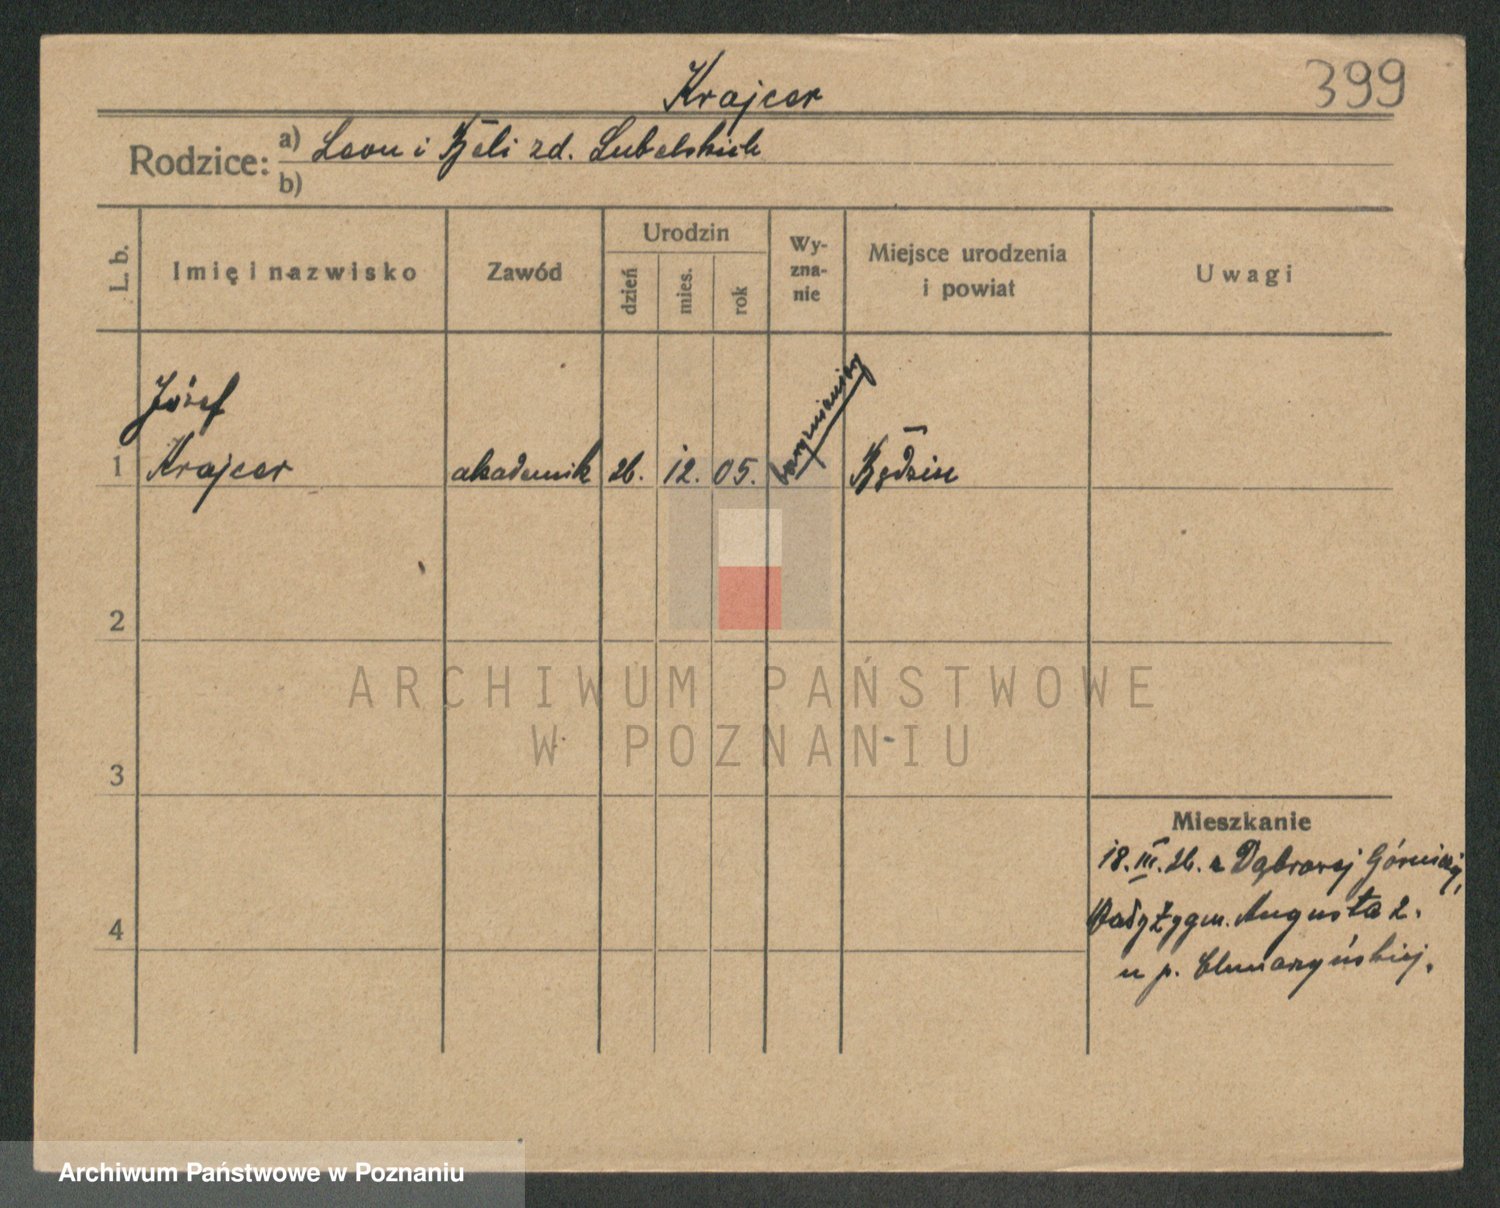 399
Krajcer
Rodzice: a) Leon i Beli zd. Lubelskich
b)
L. b. Imię i nazwisko Zawód Urodzin dzień mies. rok Wy-zna-nie Miejsce urodzenia i powiat Uwagi
Józef
1 Krajcer akademik 26. 12. 05. bezwyznaniowy Będzin
2
3
4
Mieszkanie
18. III. 26. z Dąbrowej Górniczej,
Wały Zygm. Augusta 2.
u p.
ARCHIWUM PAŃSTWOWE
W POZNANIU
Archiwum Państwowe w Poznaniu